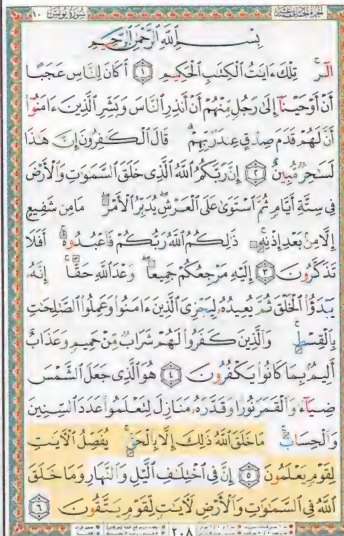 سورة يونس ١٠
بِسْمِ ٱللَّهِ ٱلرَّحْمَٰنِ ٱلرَّحِيمِ
الٓرۚ تِلْكَ ءَايَٰتُ ٱلْكِتَٰبِ ٱلْحَكِيمِ ١ أَكَانَ لِلنَّاسِ عَجَبًا
أَنْ أَوْحَيْنَآ إِلَىٰ رَجُلٍ مِّنْهُمْ أَنْ أَنذِرِ ٱلنَّاسَ وَبَشِّرِ ٱلَّذِينَ ءَامَنُوٓا۟
أَنَّ لَهُمْ قَدَمَ صِدْقٍ عِندَ رَبِّهِمْۗ قَالَ ٱلْكَٰفِرُونَ إِنَّ هَٰذَا
لَسَٰحِرٌ مُّبِينٌ ٢ إِنَّ رَبَّكُمُ ٱللَّهُ ٱلَّذِى خَلَقَ ٱلسَّمَٰوَٰتِ وَٱلْأَرْضَ
فِى سِتَّةِ أَيَّامٍ ثُمَّ ٱسْتَوَىٰ عَلَى ٱلْعَرْشِۖ يُدَبِّرُ ٱلْأَمْرَۖ مَا مِن شَفِيعٍ
إِلَّا مِنۢ بَعْدِ إِذْنِهِۦۚ ذَٰلِكُمُ ٱللَّهُ رَبُّكُمْ فَٱعْبُدُوهُۚ أَفَلَا
تَذَكَّرُونَ ٣ إِلَيْهِ مَرْجِعُكُمْ جَمِيعًاۖ وَعْدَ ٱللَّهِ حَقًّاۚ إِنَّهُۥ
يَبْدَؤُا۟ ٱلْخَلْقَ ثُمَّ يُعِيدُهُۥ لِيَجْزِىَ ٱلَّذِينَ ءَامَنُوا۟ وَعَمِلُوا۟ ٱلصَّٰلِحَٰتِ
بِٱلْقِسْطِۚ وَٱلَّذِينَ كَفَرُوا۟ لَهُمْ شَرَابٌ مِّنْ حَمِيمٍ وَعَذَابٌ
أَلِيمٌۢ بِمَا كَانُوا۟ يَكْفُرُونَ ٤ هُوَ ٱلَّذِى جَعَلَ ٱلشَّمْسَ
ضِيَآءً وَٱلْقَمَرَ نُورًا وَقَدَّرَهُۥ مَنَازِلَ لِتَعْلَمُوا۟ عَدَدَ ٱلسِّنِينَ
وَٱلْحِسَابَۚ مَا خَلَقَ ٱللَّهُ ذَٰلِكَ إِلَّا بِٱلْحَقِّۚ يُفَصِّلُ ٱلْءَايَٰتِ
لِقَوْمٍ يَعْلَمُونَ ٥ إِنَّ فِى ٱخْتِلَٰفِ ٱلَّيْلِ وَٱلنَّهَارِ وَمَا خَلَقَ
ٱللَّهُ فِى ٱلسَّمَٰوَٰتِ وَٱلْأَرْضِ لَءَايَٰتٍ لِّقَوْمٍ يَتَّقُونَ ٦
٢٠٨